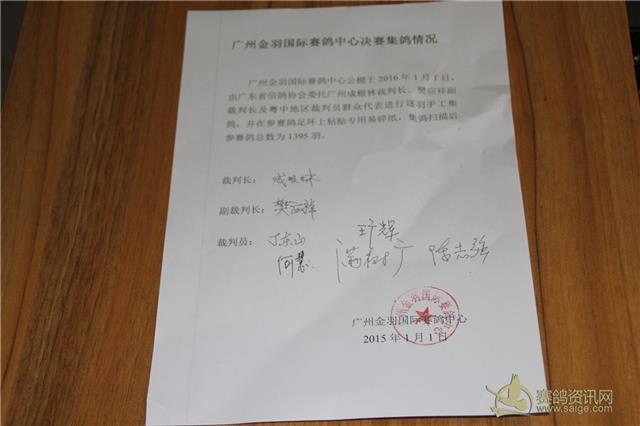 广州金羽国际赛鸽中心决赛集鸽情况
广州金羽国际赛鸽中心公棚于2016年1月1日,
由广东省信鸽协会委托广州成根林裁判长、樊应祥副
裁判长及粤中地区裁判员群众代表进行逐羽手工集
鸽，并在参赛鸽足环上粘贴专用易碎纸，集鸽扫描后
参赛鸽总数为1395羽。
裁判长：成根林
副裁判长：樊应祥
王广辉
裁判员：丁东山
何 潘树广 陈志强
广州金羽国际赛鸽中心
2015年1月1日
广州金羽国际赛鸽中心
赛鸽资讯网
www.saige.com